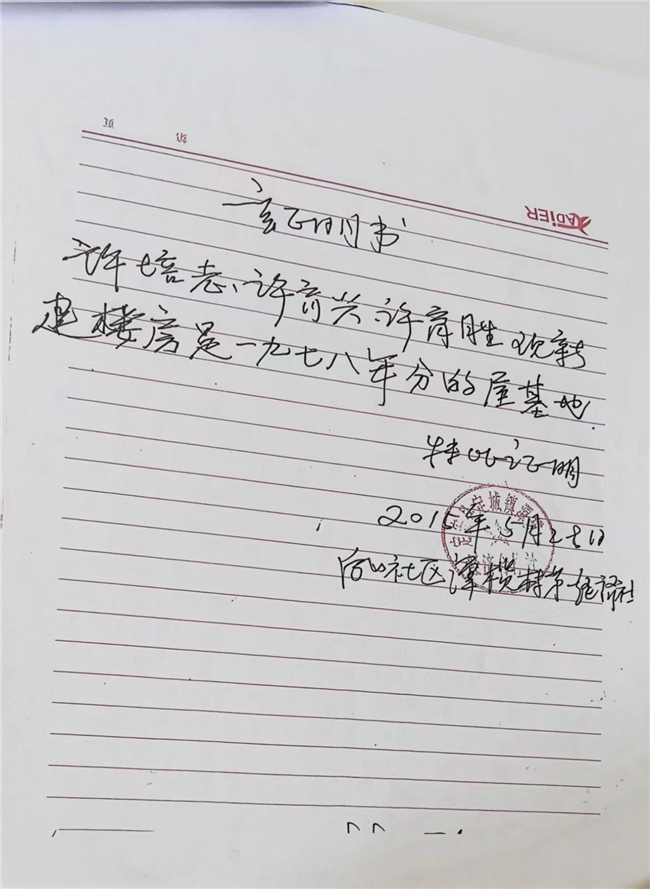 证明书
许培志、许育兴、许育胜现新
建楼房是一九七八年分的屋基地.
特此证明
2015年5月27日
社区潭村第经济社
XADiER
页
第